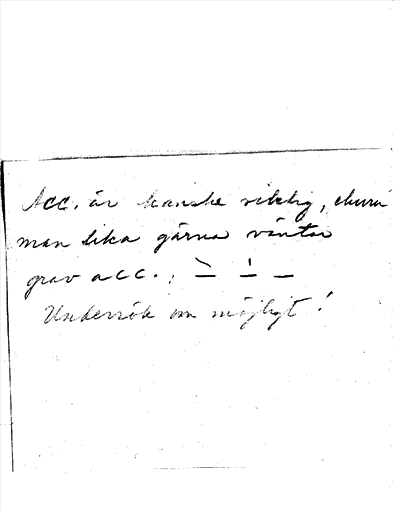 Acc. är kanske riktig, ehuru
man lika gärna väntar
grav acc.:
Undersök om möjligt!